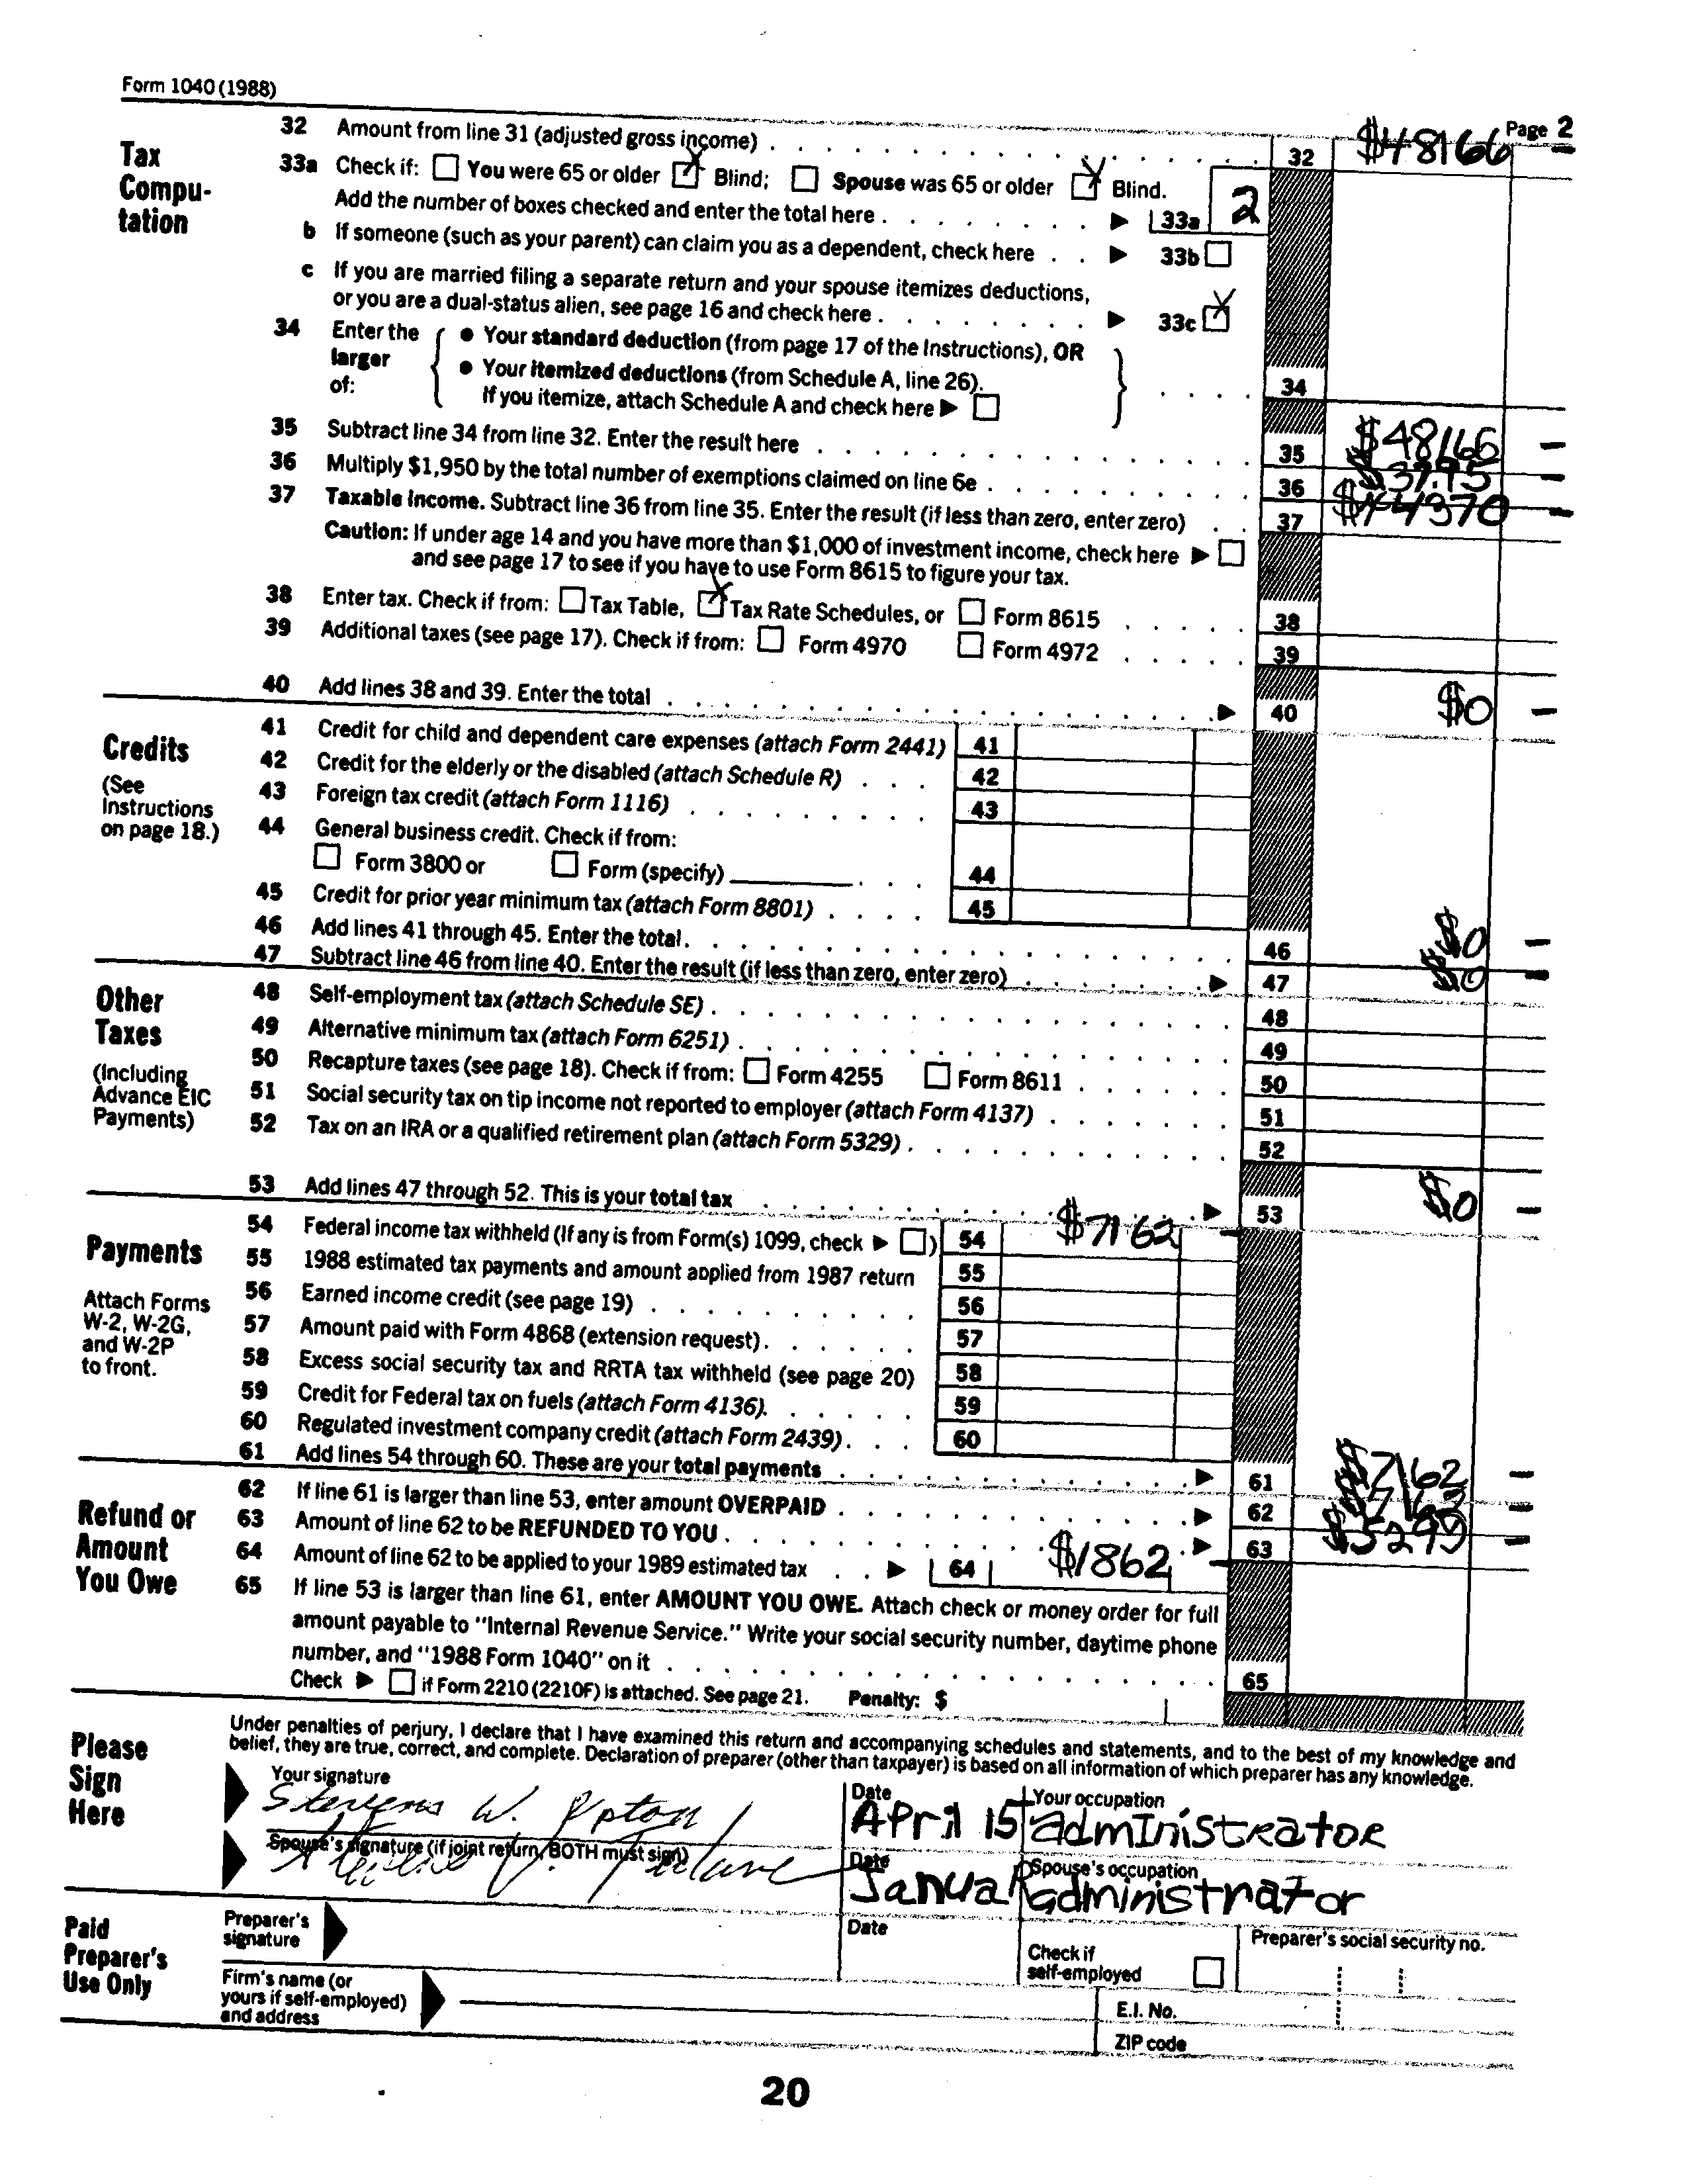 Form 1040 (1988)
Page 2
Tax Compu-tation
32 Amount from line 31 (adjusted gross income) 32 $48166 –
33a Check if: You were 65 or older X Blind; Spouse was 65 or older X Blind.
Add the number of boxes checked and enter the total here 33a 2
b If someone (such as your parent) can claim you as a dependent, check here 33b
c If you are married filing a separate return and your spouse itemizes deductions,
or you are a dual-status alien, see page 16 and check here 33c X
34 Enter the larger of: • Your standard deduction (from page 17 of the Instructions), OR
• Your itemized deductions (from Schedule A, line 26).
If you itemize, attach Schedule A and check here ▶ 34
35 Subtract line 34 from line 32. Enter the result here 35 $48166 –
36 Multiply $1,950 by the total number of exemptions claimed on line 6e 36 –
37 Taxable income. Subtract line 36 from line 35. Enter the result (if less than zero, enter zero) 37 –
Caution: If under age 14 and you have more than $1,000 of investment income, check here ▶
and see page 17 to see if you have to use Form 8615 to figure your tax.
38 Enter tax. Check if from: Tax Table, X Tax Rate Schedules, or Form 8615 38
39 Additional taxes (see page 17). Check if from: Form 4970 Form 4972 39
40 Add lines 38 and 39. Enter the total ▶ 40 $0 –
Credits
(See Instructions on page 18.)
41 Credit for child and dependent care expenses (attach Form 2441) 41
42 Credit for the elderly or the disabled (attach Schedule R) 42
43 Foreign tax credit (attach Form 1116) 43
44 General business credit. Check if from:
Form 3800 or Form (specify) 44
45 Credit for prior year minimum tax (attach Form 8801) 45
46 Add lines 41 through 45. Enter the total 46 $0 –
47 Subtract line 46 from line 40. Enter the result (if less than zero, enter zero) ▶ 47 $0 –
Other Taxes
(Including Advance EIC Payments)
48 Self-employment tax (attach Schedule SE) 48
49 Alternative minimum tax (attach Form 6251) 49
50 Recapture taxes (see page 18). Check if from: Form 4255 Form 8611 50
51 Social security tax on tip income not reported to employer (attach Form 4137) 51
52 Tax on an IRA or a qualified retirement plan (attach Form 5329) 52
53 Add lines 47 through 52. This is your total tax ▶ 53 $0 –
Payments
Attach Forms W-2, W-2G, and W-2P to front.
54 Federal income tax withheld (If any is from Form(s) 1099, check ▶ ) 54 $7162 –
55 1988 estimated tax payments and amount applied from 1987 return 55
56 Earned income credit (see page 19) 56
57 Amount paid with Form 4868 (extension request) 57
58 Excess social security tax and RRTA tax withheld (see page 20) 58
59 Credit for Federal tax on fuels (attach Form 4136). 59
60 Regulated investment company credit (attach Form 2439) 60
61 Add lines 54 through 60. These are your total payments ▶ 61 $7162 –
Refund or Amount You Owe
62 If line 61 is larger than line 53, enter amount OVERPAID ▶ 62 $7162 –
63 Amount of line 62 to be REFUNDED TO YOU ▶ 63 $5299 –
64 Amount of line 62 to be applied to your 1989 estimated tax ▶ 64 $1862 –
65 If line 53 is larger than line 61, enter AMOUNT YOU OWE. Attach check or money order for full
amount payable to "Internal Revenue Service." Write your social security number, daytime phone
number, and "1988 Form 1040" on it 65
Check ▶ if Form 2210 (2210F) is attached. See page 21. Penalty: $
Please Sign Here
Under penalties of perjury, I declare that I have examined this return and accompanying schedules and statements, and to the best of my knowledge and
belief, they are true, correct, and complete. Declaration of preparer (other than taxpayer) is based on all information of which preparer has any knowledge.
Your signature Date Your occupation
W. April 15 administrator
Spouse's signature (if joint return, BOTH must sign) Date Spouse's occupation
Januar administrator
Paid Preparer's Use Only
Preparer's signature Date
Check if self-employed
Preparer's social security no.
Firm's name (or yours if self-employed) and address
E.I. No.
ZIP code
20